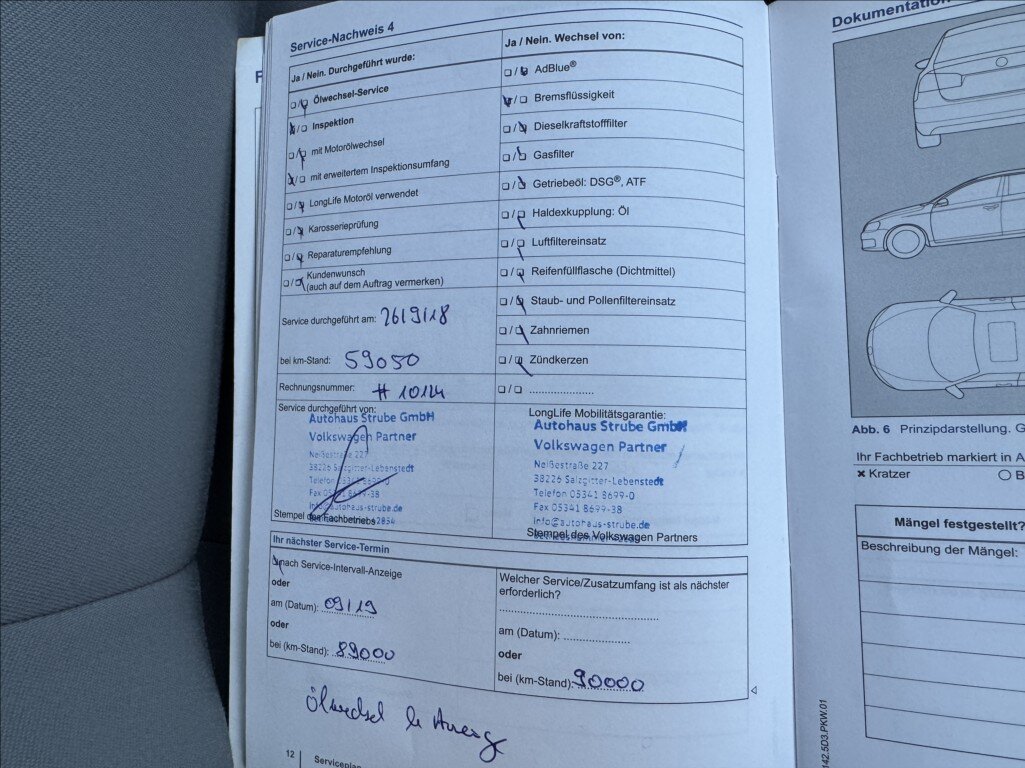 Service-Nachweis 4
Ja / Nein. Durchgeführt wurde:
Ölwechsel-Service
Inspektion
mit Motorölwechsel
mit erweitertem Inspektionsumfang
LongLife Motoröl verwendet
Karosserieprüfung
Reparaturempfehlung
Kundenwunsch
(auch auf dem Auftrag vermerken)
Service durchgeführt am: 26/9/18
bei km-Stand: 59050
Rechnungsnummer: # 10124
Service durchgeführt von:
Autohaus Strube GmbH
Volkswagen Partner
Neißestraße 227
38226 Salzgitter-Lebenstedt
Telefon 05341 8699-0
Fax 05341 8699-38
info@autohaus-strube.de
Stempel des Fachbetriebs
Ja / Nein. Wechsel von:
AdBlue®
Bremsflüssigkeit
Dieselkraftstofffilter
Gasfilter
Getriebeöl: DSG®, ATF
Haldexkupplung: Öl
Luftfiltereinsatz
Reifenfüllflasche (Dichtmittel)
Staub- und Pollenfiltereinsatz
Zahnriemen
Zündkerzen
....................
LongLife Mobilitätsgarantie:
Autohaus Strube GmbH
Volkswagen Partner
Neißestraße 227
38226 Salzgitter-Lebenstedt
Telefon 05341 8699-0
Fax 05341 8699-38
info@autohaus-strube.de
Stempel des Volkswagen Partners
Ihr nächster Service-Termin
nach Service-Intervall-Anzeige
oder
am (Datum): 09/19
oder
bei (km-Stand): 89000
Welcher Service/Zusatzumfang ist als nächster
erforderlich?
am (Datum): ....................
oder
bei (km-Stand): 90000
Ölwechsel
12 Serviceplan
Dokumentation
Abb. 6 Prinzipdarstellung. G
Ihr Fachbetrieb markiert in A
Kratzer
B
Mängel festgestellt?
Beschreibung der Mängel:
142.5D3.PKW.01